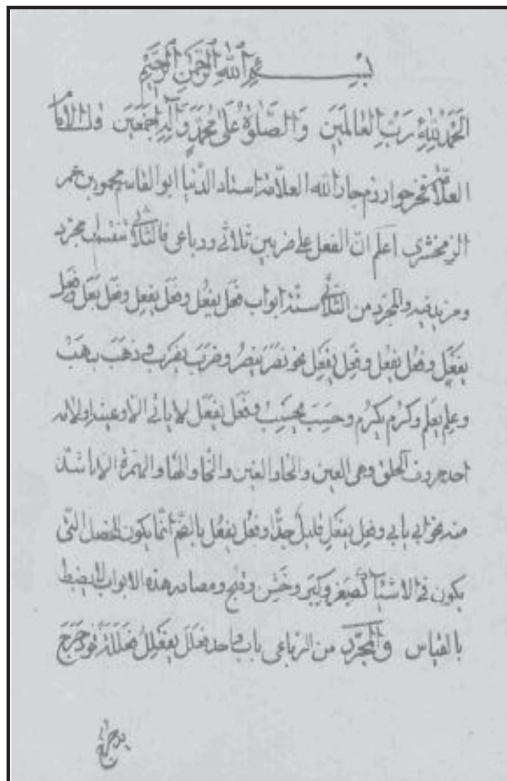 بسم الله الرحمن الرحيم
الحمد لله رب العالمين والصلوة على محمد وآله اجمعين قال الامام
العلامة فخر خوارزم جار الله العلامة استاد الدنيا ابو القاسم محمود بن عمر
الزمخشري اعلم ان الفعل على ضربين ثلاثي ورباعي فالثلاثي منقسم مجرد
ومزيد فيه والمجرد من الثلاثي ستة ابواب فعَل يفعُل وفعَل يفعِل وفعَل يفعَل وفعِل
يفعَل وفعُل يفعُل وفعِل يفعِل نحو نصر ينصر وضرب يضرب وذهب يذهب
وعلم يعلم وكرم يكرم وحسب يحسب وفعَل يفعَل لا يأتي الا وعينه او لامه
احد حروف الحلق وهي العين والحاء والغين والخاء والهاء والهمزة الا ما شذ
منه نحو ابى يابى وفعِل يفعِل قليل جدا وفعُل يفعُل بالضم انما يكون للخصل التي
يكون في الاشياء كصغر وكبر وخشن وقبح ومصادر هذه الابواب لا يضبط
بالقياس والمجرد من الرباعي باب واحد فعلل يفعلل فعللة نحو دحرج
يدحرج